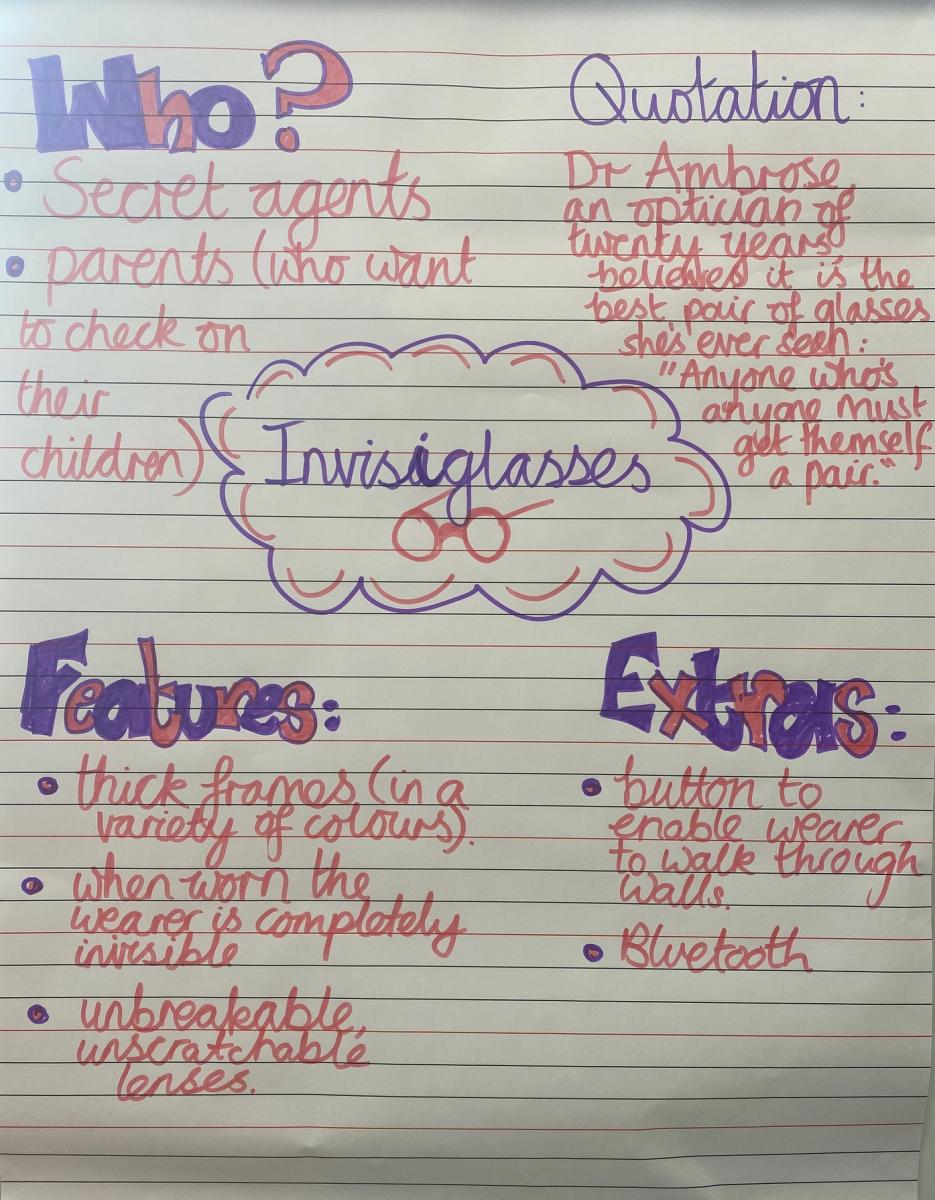 Who?
• Secret agents
• parents (who want
to check on
their
children)
Quotation:
Dr Ambrose,
an optician of
twenty years
believes it is the
best pair of glasses
she's ever seen:
"Anyone who's
anyone must
get themself
a pair."
Invisiglasses
Features:
• thick frames (in a
variety of colours).
• when worn the
wearer is completely
invisible
• unbreakable,
unscratchable
lenses.
Extras:
• button to
enable wearer
to walk through
walls.
• Bluetooth